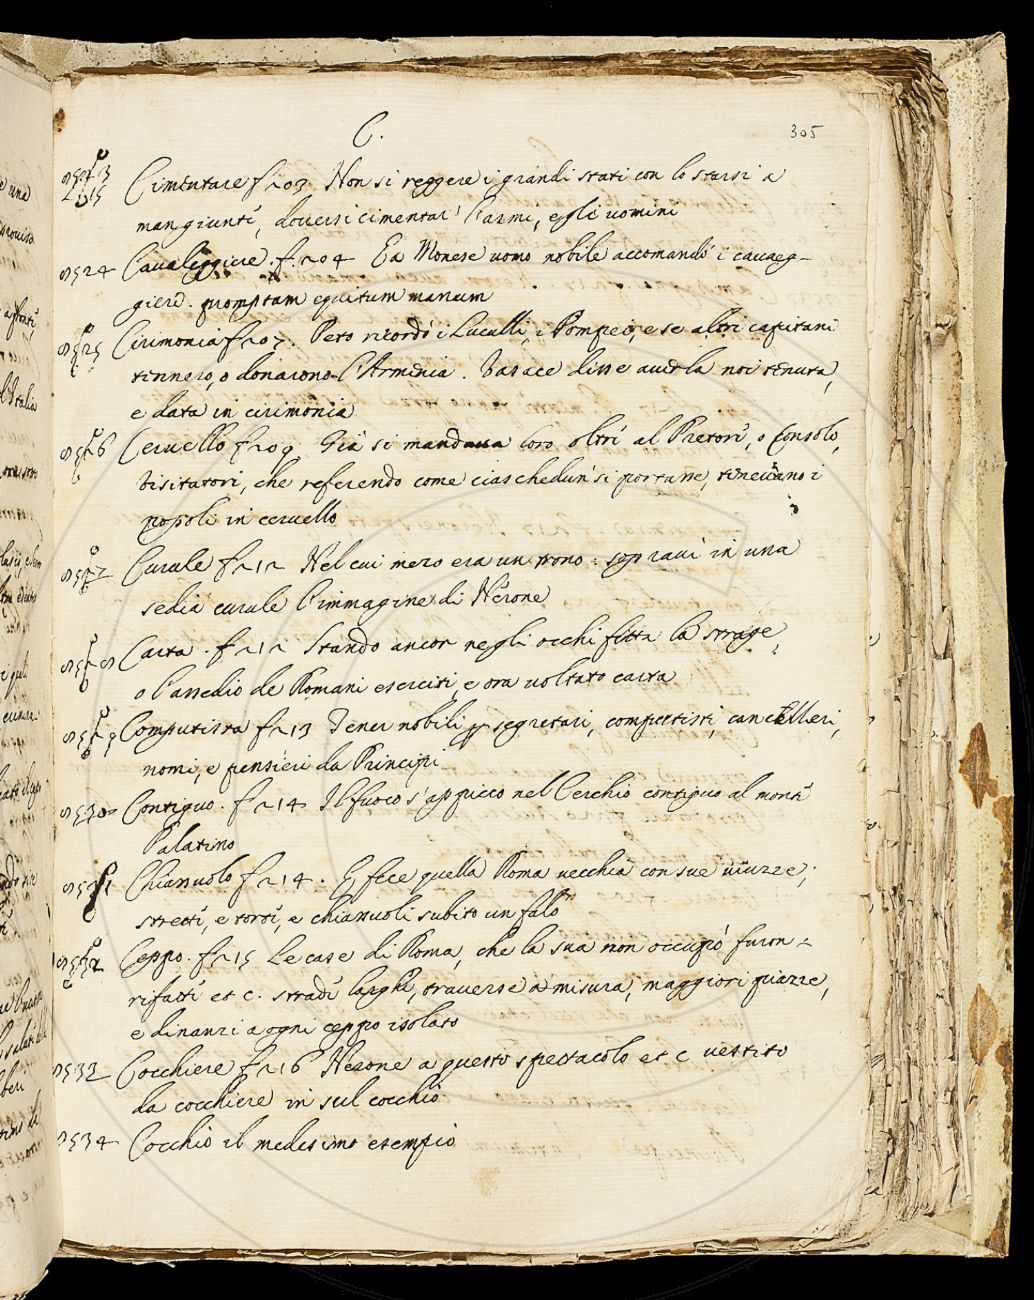 C.
305
Cimentare f 203 Non si reggere i grandi stati con lo starsi a
man giunte, doversi cimentar' l'armi, e gli uomini
8524 Cavaleggiere. f. 204 Ea Monese uomo nobile accomandò i cavaeg-
gieri. promptam equitum manum
8525 Cirimonia f 207. Peto ricordò i Luculli, i Pompei, e se altri capitani
tennero, o donarono l'Armenia. Vasace disse averla noi tenuta,
e data in cirimonia
8526 Cervello f 209 Già si mandava loro oltre al Pretore, o Consolo,
visitatori, che referendo come ciaschedun si portasse, tenevano i
popoli in cervello
8527 Curule f 212 Nel cui mezo era un trono: sopravi in una
sedia curule l'immagine di Nerone
8528 Carta. f 212 Stando ancor negli occhi fitta la strage,
o l'assedio de Romani eserciti, e ora voltato carta
8529 Computista f 213 Tener nobili p segretari, computisti, cancellieri,
nomi, e pensieri da Principi
8530 Contiguo. f 214 Il fuoco s'appicco nel Cerchio contiguo al monte
Palatino
8531 Chiassuolo f 214. E fece quella Roma vecchia con sue viuzze,
strette, e torte, e chiassuoli subito un falò
8532 Ceppo. f 215 Le case di Roma, che la sua non occupò furon
rifatte et c. strade larghe, traverse a misura, maggiori piazze,
e dinanzi a ogni ceppo isolato
8533 Cocchiere f 216 Nerone a questo spettacolo et c vestito
da cocchiere in sul cocchio
8534 Cocchio il medesimo esempio